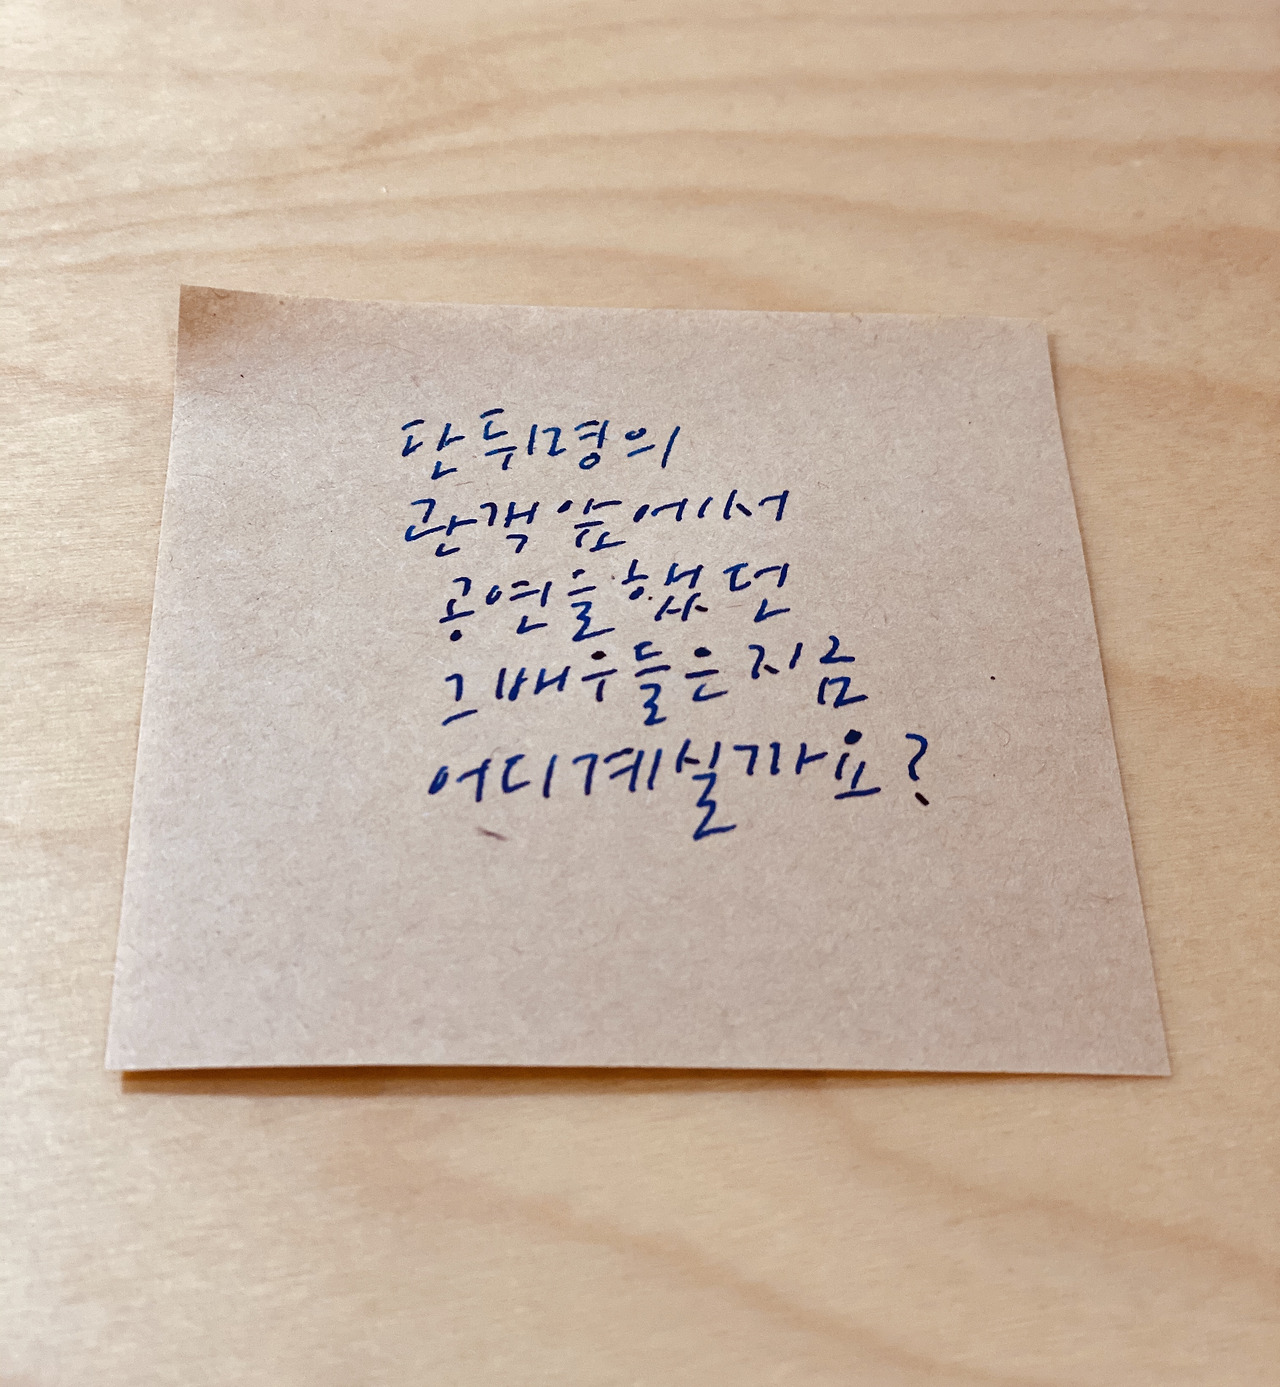 단 두명의
관객 앞에서
공연을 했던
그 배우들은 지금
어디 계실까요?